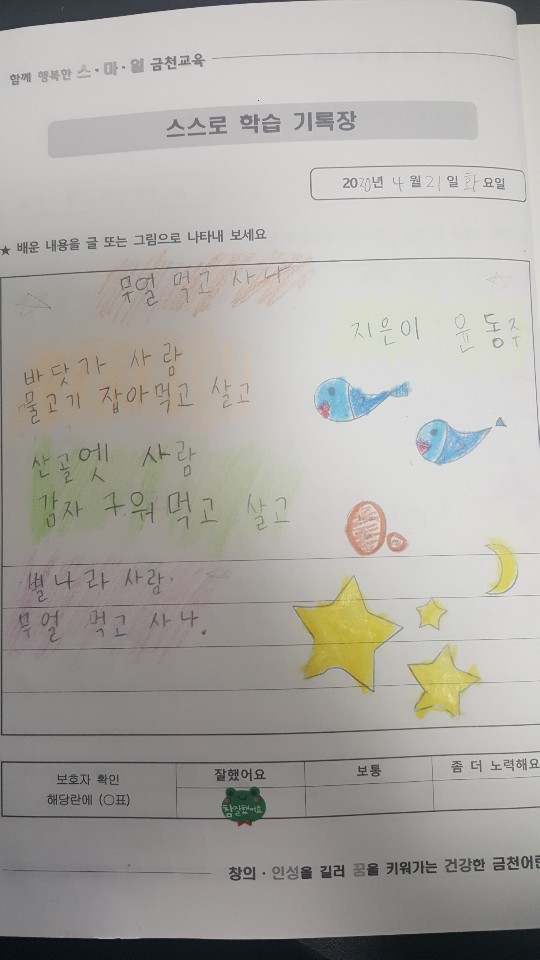 함께 행복한 스·마·일 금천교육
스스로 학습 기록장
2020년 4월 21일 화요일
★ 배운 내용을 글 또는 그림으로 나타내 보세요
무얼 먹고 사나
지은이 윤동주
바닷가 사람
물고기 잡아먹고 살고
산골엣 사람
감자 구워먹고 살고
별나라 사람.
무얼 먹고 사나.
보호자 확인
해당란에 (○표)
잘했어요 보통 좀 더 노력해요
참 잘했어요
창의·인성을 길러 꿈을 키워가는 건강한